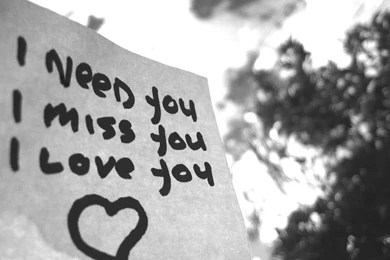 I NEED YOU
I MISS YOU
I LOVE YOU